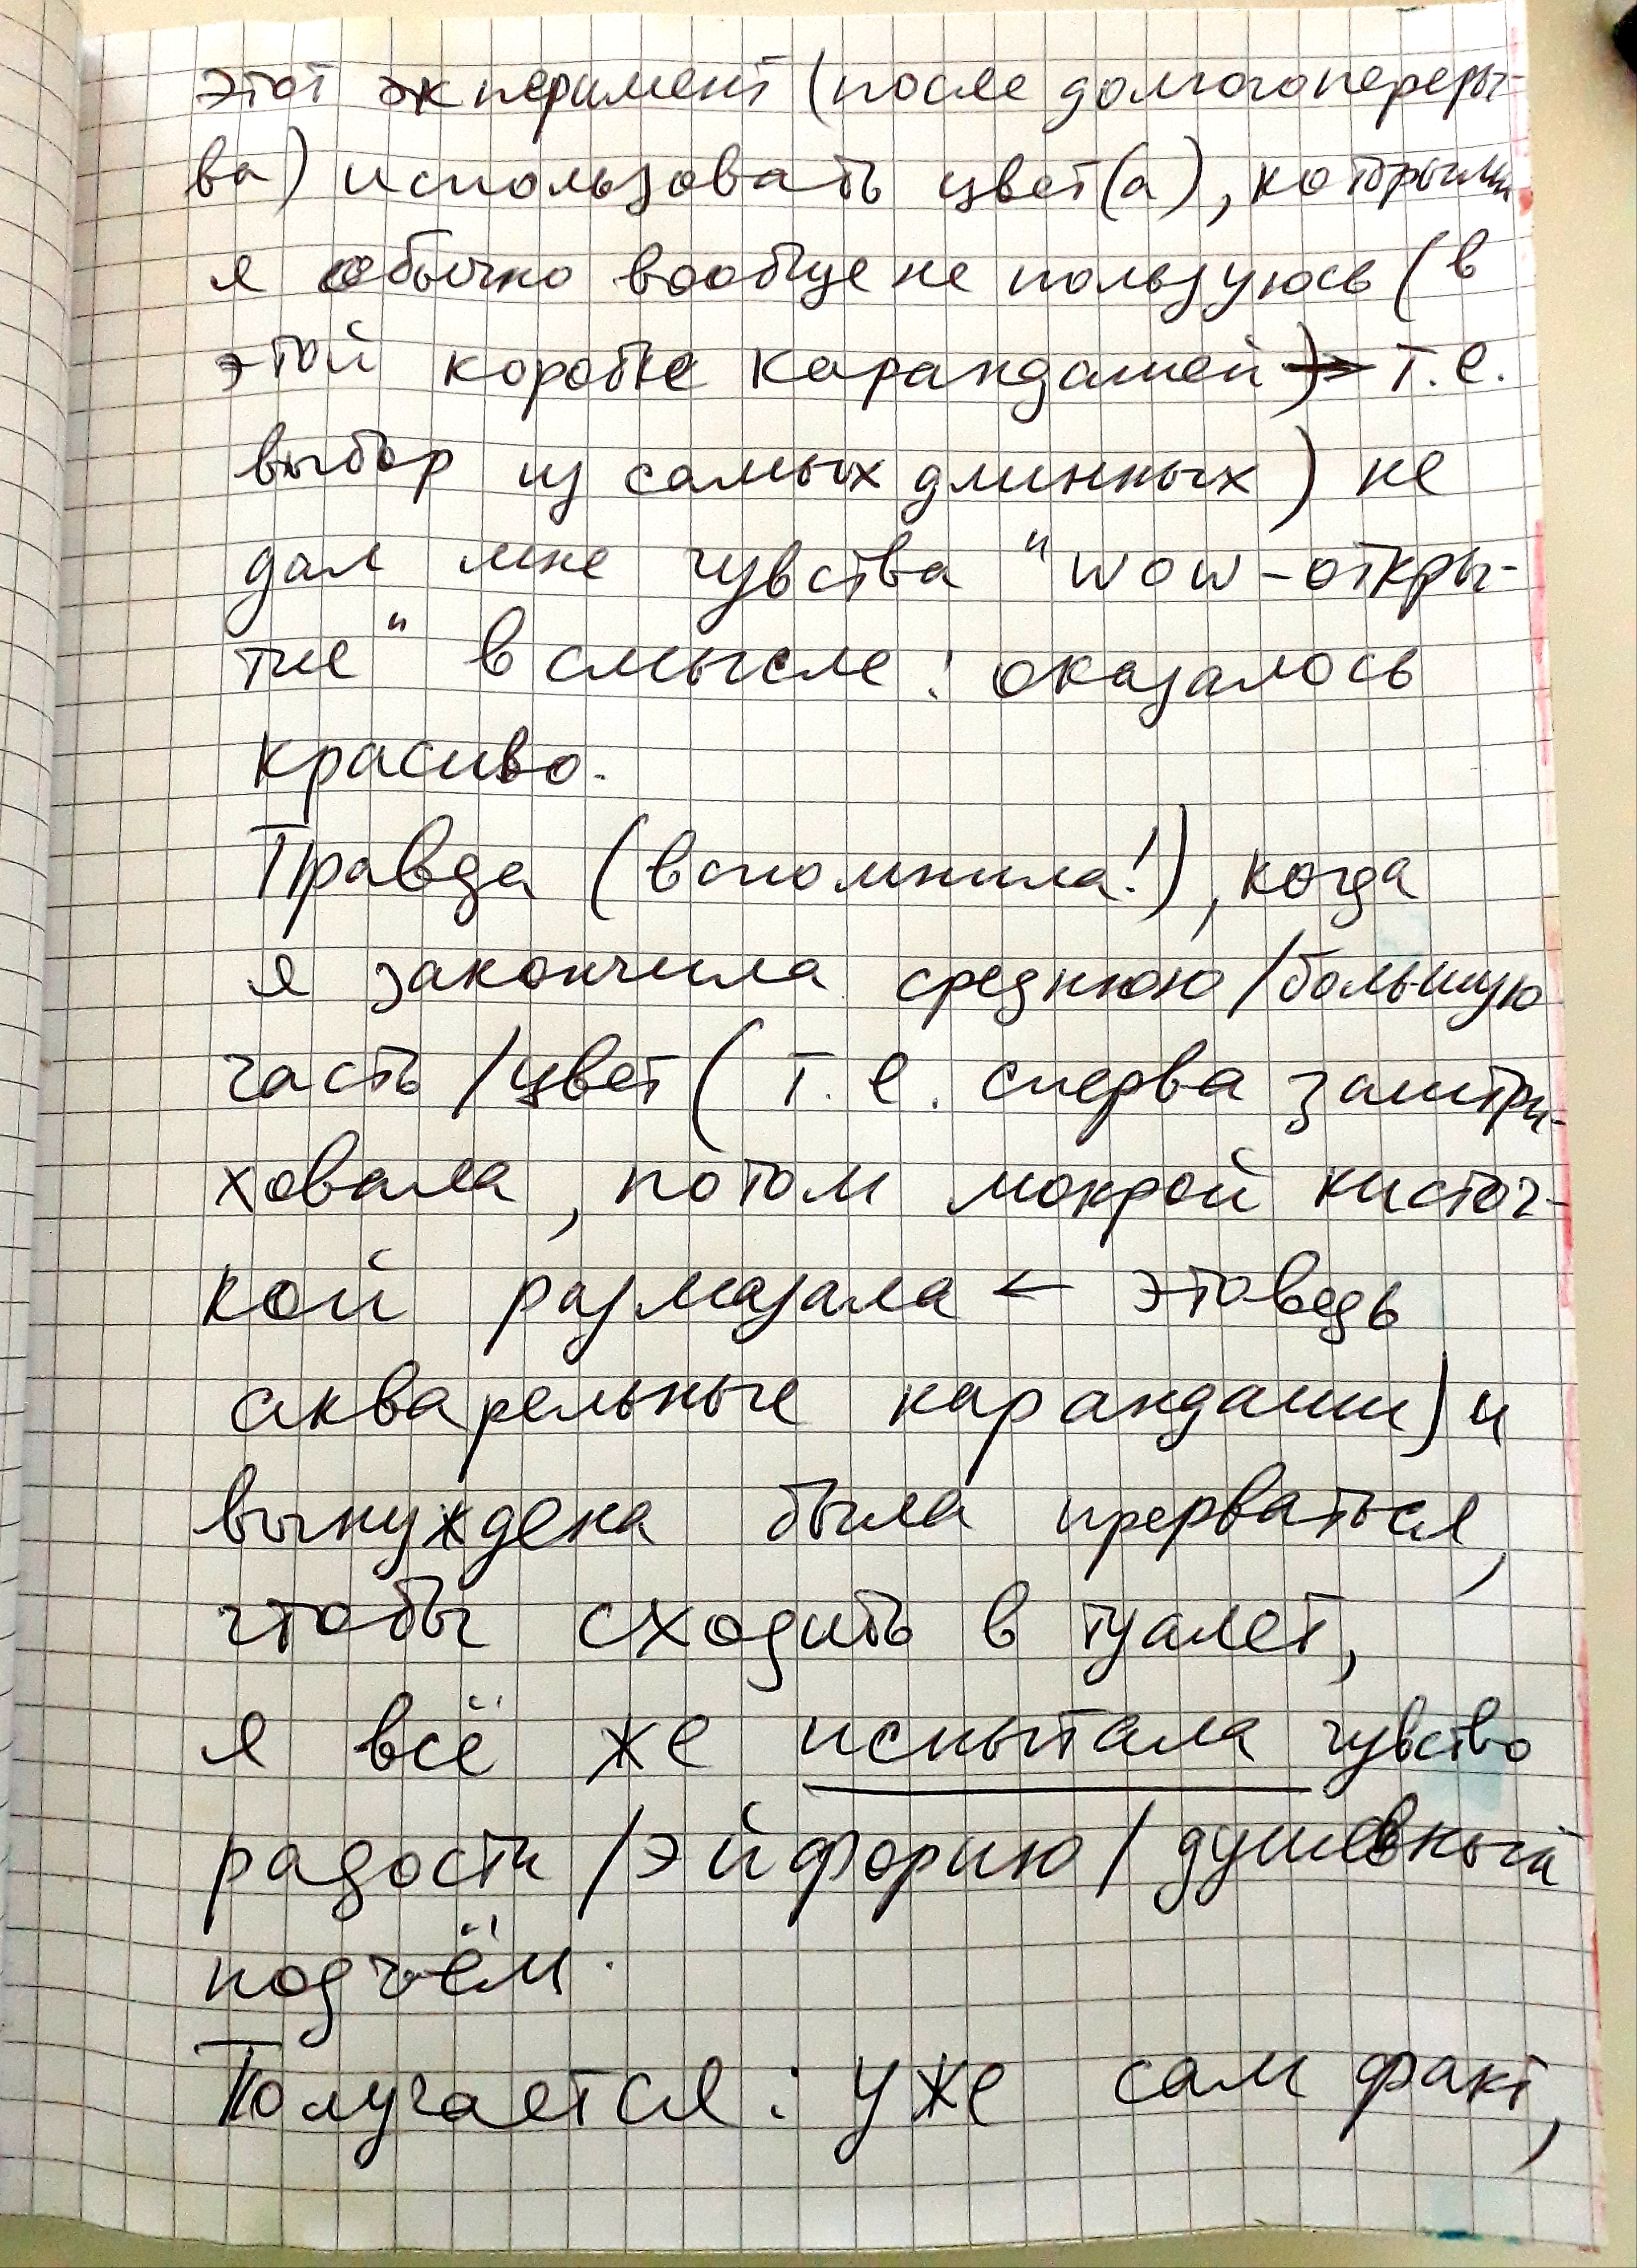 этот экперимент (после долгого переры-
ва) использовать цвет(а), которыми
я обычно вообще не пользуюсь (в
этой коробке карандашей → т.е.
выбор из самых длинных) не
дал мне чувства "wow-откры-
тие" в смысле: оказалось
красиво.
Правда (вспомнила!), когда
я закончила среднюю/большую
часть/цвет (т.е. сперва заштри-
ховала, потом мокрой кисточ-
кой размазала ← это ведь
акварельные карандаши) и
вынуждена была прерваться,
чтобы сходить в туалет,
я всё же испытала чувство
радости/эйфорию/душевный
подъём.
Получается: уже сам факт,